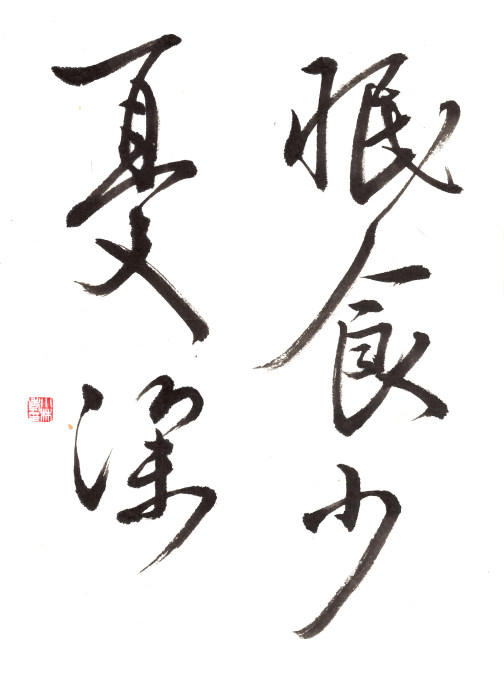 眠食少
夏深